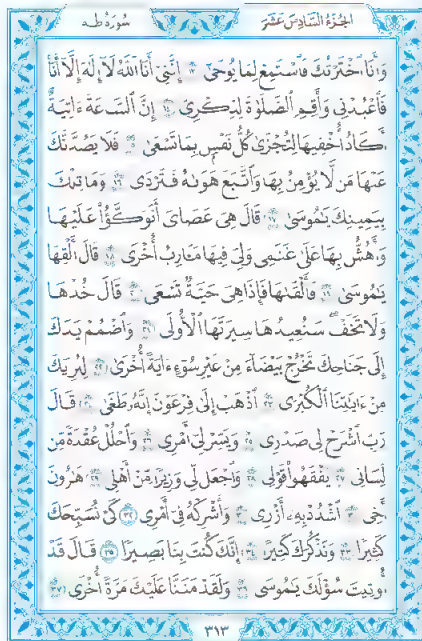 الجزء السادس عشر
سورة طه
وَأَنَا ٱخْتَرْتُكَ فَٱسْتَمِعْ لِمَا يُوحَىٰٓ ١٣ إِنَّنِىٓ أَنَا ٱللَّهُ لَآ إِلَٰهَ إِلَّآ أَنَا۠
فَٱعْبُدْنِى وَأَقِمِ ٱلصَّلَوٰةَ لِذِكْرِىٓ ١٤ إِنَّ ٱلسَّاعَةَ ءَاتِيَةٌ
أَكَادُ أُخْفِيهَا لِتُجْزَىٰ كُلُّ نَفْسٍۭ بِمَا تَسْعَىٰ ١٥ فَلَا يَصُدَّنَّكَ
عَنْهَا مَن لَّا يُؤْمِنُ بِهَا وَٱتَّبَعَ هَوَىٰهُ فَتَرْدَىٰ ١٦ وَمَا تِلْكَ
بِيَمِينِكَ يَٰمُوسَىٰ ١٧ قَالَ هِىَ عَصَاىَ أَتَوَكَّؤُا۟ عَلَيْهَا
وَأَهُشُّ بِهَا عَلَىٰ غَنَمِى وَلِىَ فِيهَا مَـَٔارِبُ أُخْرَىٰ ١٨ قَالَ أَلْقِهَا
يَٰمُوسَىٰ ١٩ فَأَلْقَىٰهَا فَإِذَا هِىَ حَيَّةٌ تَسْعَىٰ ٢٠ قَالَ خُذْهَا
وَلَا تَخَفْ سَنُعِيدُهَا سِيرَتَهَا ٱلْأُولَىٰ ٢١ وَٱضْمُمْ يَدَكَ
إِلَىٰ جَنَاحِكَ تَخْرُجْ بَيْضَآءَ مِنْ غَيْرِ سُوٓءٍ ءَايَةً أُخْرَىٰ ٢٢ لِنُرِيَكَ
مِنْ ءَايَٰتِنَا ٱلْكُبْرَى ٢٣ ٱذْهَبْ إِلَىٰ فِرْعَوْنَ إِنَّهُۥ طَغَىٰ ٢٤ قَالَ
رَبِّ ٱشْرَحْ لِى صَدْرِى ٢٥ وَيَسِّرْ لِىٓ أَمْرِى ٢٦ وَٱحْلُلْ عُقْدَةً مِّن
لِّسَانِى ٢٧ يَفْقَهُوا۟ قَوْلِى ٢٨ وَٱجْعَل لِّى وَزِيرًا مِّنْ أَهْلِى ٢٩ هَٰرُونَ
أَخِى ٣٠ ٱشْدُدْ بِهِۦٓ أَزْرِى ٣١ وَأَشْرِكْهُ فِىٓ أَمْرِى ٣٢ كَىْ نُسَبِّحَكَ
كَثِيرًا ٣٣ وَنَذْكُرَكَ كَثِيرًا ٣٤ إِنَّكَ كُنتَ بِنَا بَصِيرًا ٣٥ قَالَ قَدْ
أُوتِيتَ سُؤْلَكَ يَٰمُوسَىٰ ٣٦ وَلَقَدْ مَنَنَّا عَلَيْكَ مَرَّةً أُخْرَىٰٓ ٣٧
٣١٣